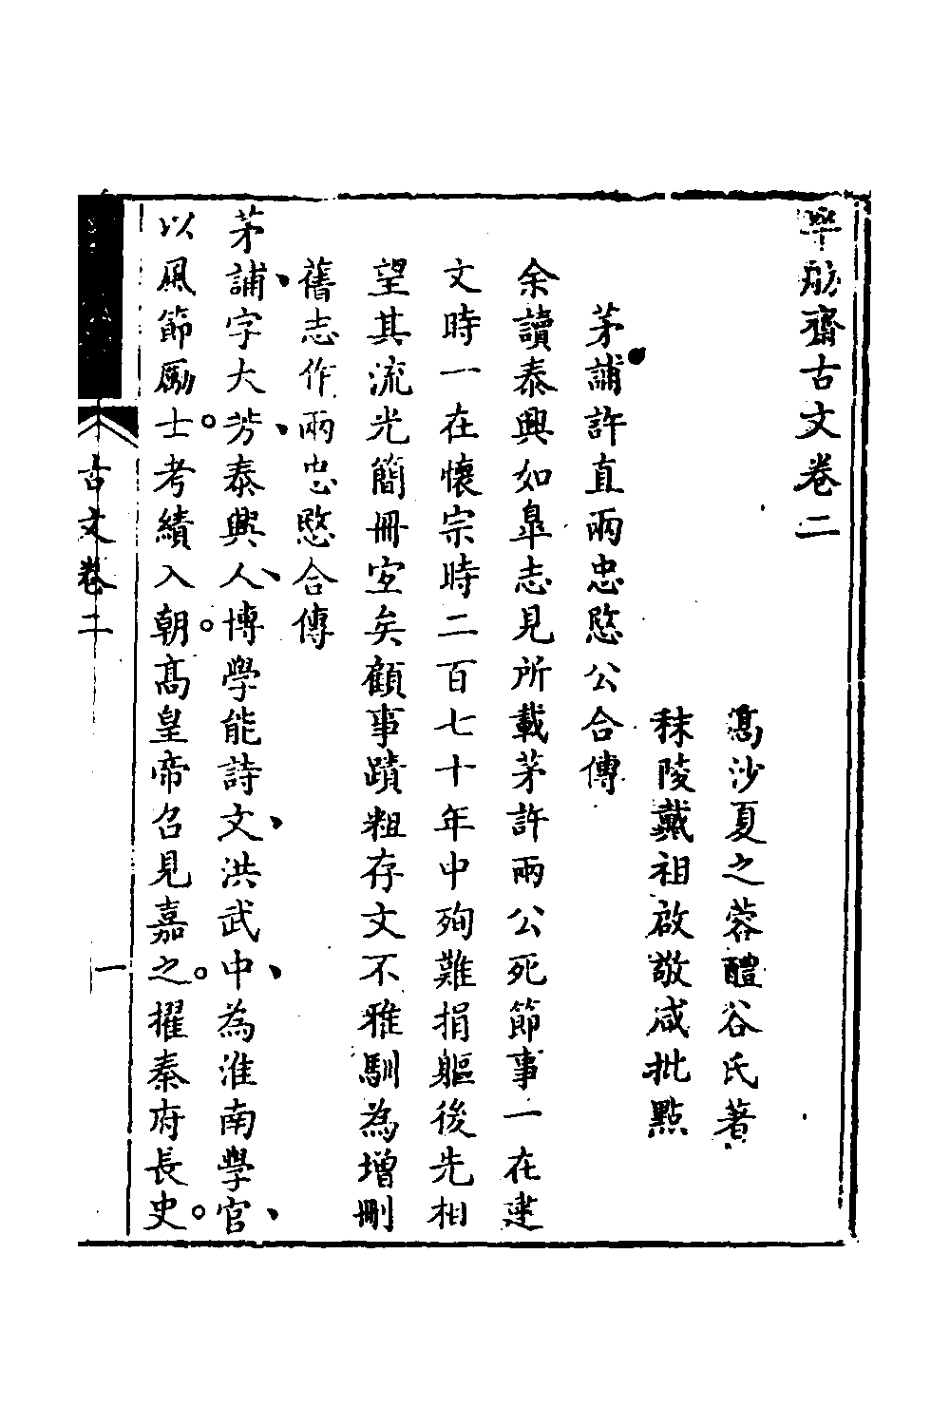 半舫齋古文卷二
高沙夏之蓉醴谷氏著
秣陵戴祖啟敬咸批點
茅誧許直兩忠愍公合傳
余讀泰興如臯志見所載茅許兩公死節事一在建
文時一在懷宗時二百七十年中殉難捐軀後先相
望其流光簡冊宜矣顧事蹟粗存文不雅馴為增刪
舊志作兩忠愍合傳
茅誧字大芳泰興人博學能詩文洪武中為淮南學官
以風節勵士考績入朝高皇帝召見嘉之擢秦府長史
古文卷二
一